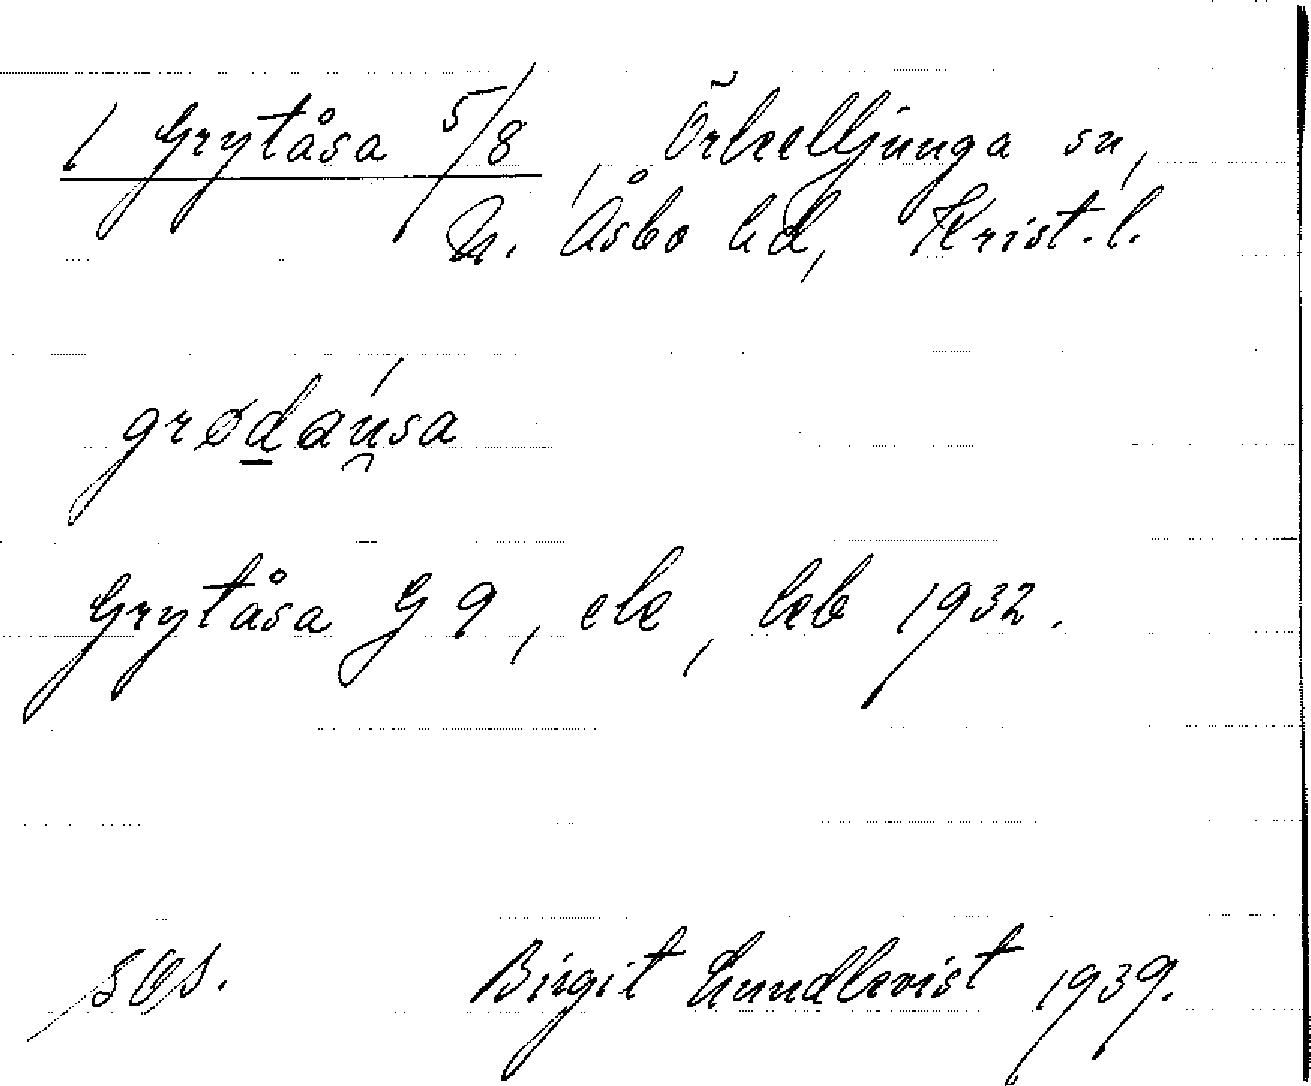 1 Grytåsa 5/8, Örkelljunga sn,
N. Åsbo hd, Krist. l.
grødaṉsa
Grytåsa G 9, ek, kb 1932.
Birgit Lundkvist 1939.